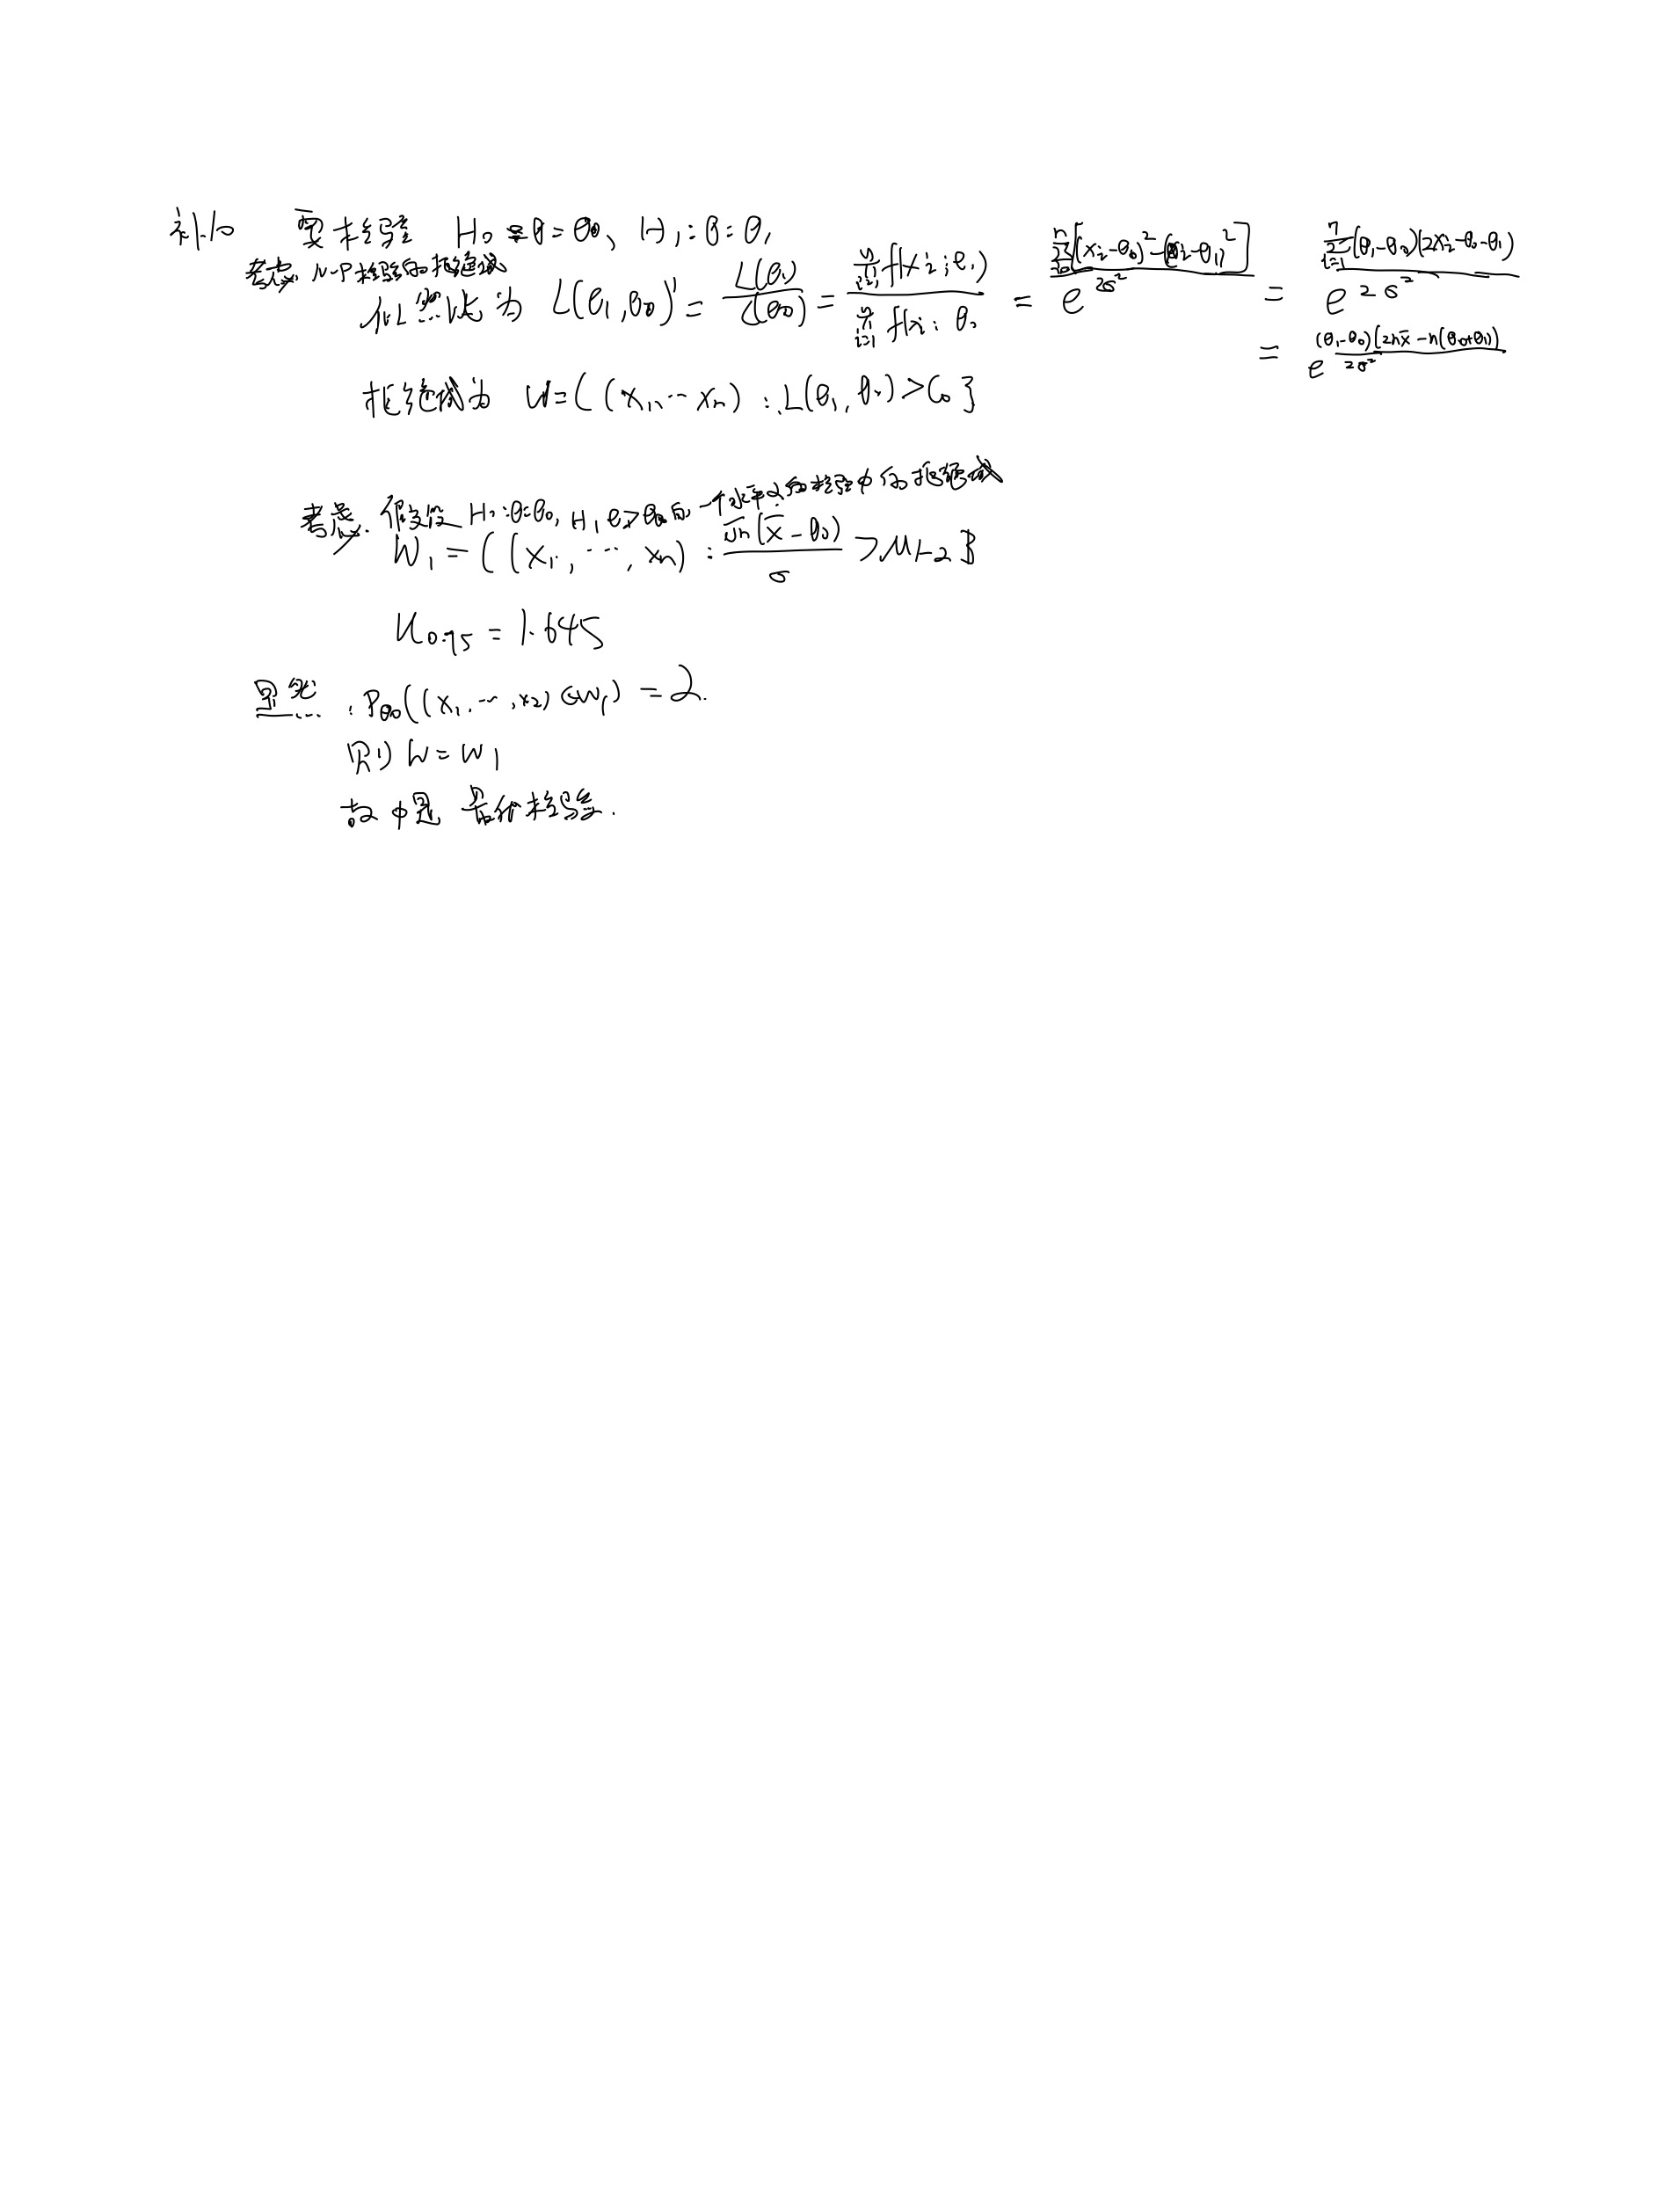 补10 要检验 H₀:θ=θ₀、H₁:θ=θ₁
考虑 N-P检验的拒绝域
似然比为 L(θ₁,θ₀)=L(θ₁)/L(θ₀)=∏_{i=1}^{n} f(x_i;θ₁)/∏_{i=1}^{n} f(x_i;θ₀ = e^{∑[(x_i-θ₀)²-(x_i-θ₁)²]/2σ²} = e^{∑_{i=1}^{n}(θ₁-θ₀)(2x_i-θ₀-θ₁)/2σ²}
= e^{(θ₁-θ₀)[2nx̄-n(θ₀+θ₁)]/2σ²}
拒绝域为 W={(x₁,…xₙ):L(θ₁,θ₀)>C₀}
考虑.假设 H₀:θ=θ₀, H₁ θ₁>θ₀的一个水平α的检验φ的拒绝域
W₁={(x₁,…,xₙ):√n(x̄-θ₀)/σ>μ₁₋α}
u₀.₉₅=1.645
显然:P_{θ₀}((x₁,…,x₂)∈W₁)=α.
则 W=W₁
故φ是 最优检验.